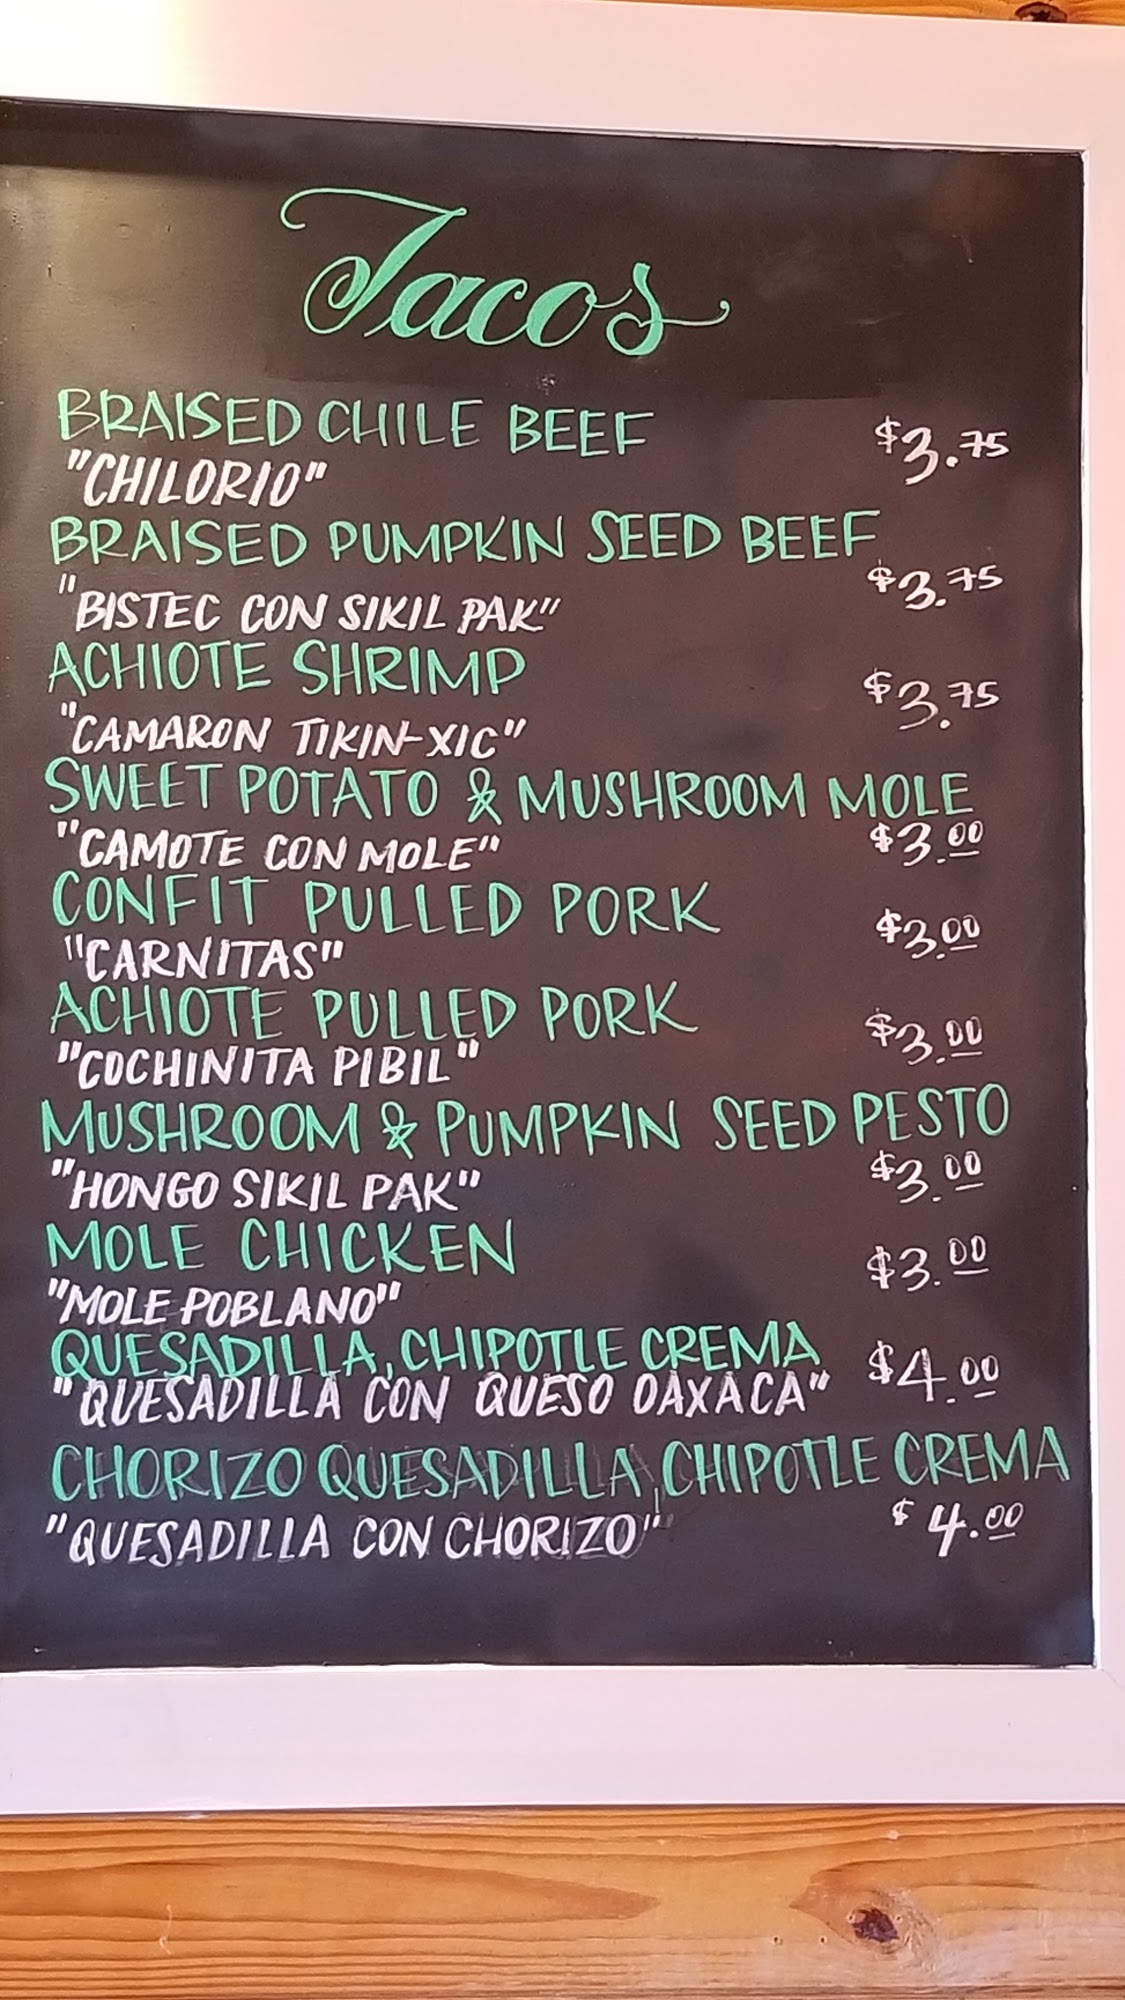 Tacos
BRAISED CHILE BEEF
$3.75
"CHILORIO"
BRAISED PUMPKIN SEED BEEF
$3.75
"BISTEC CON SIKIL PAK"
ACHIOTE SHRIMP
$3.75
"CAMARON TIKIN-XIC"
SWEET POTATO & MUSHROOM MOLE
$3.00
"CAMOTE CON MOLE"
CONFIT PULLED PORK
$3.00
"CARNITAS"
ACHIOTE PULLED PORK
$3.00
"COCHINITA PIBIL"
MUSHROOM & PUMPKIN SEED PESTO
$3.00
"HONGO SIKIL PAK"
MOLE CHICKEN
$3.00
"MOLE POBLANO"
QUESADILLA, CHIPOTLE CREMA
$4.00
"QUESADILLA CON QUESO OAXACA"
CHORIZO QUESADILLA, CHIPOTLE CREMA
"QUESADILLA CON CHORIZO"
$4.00